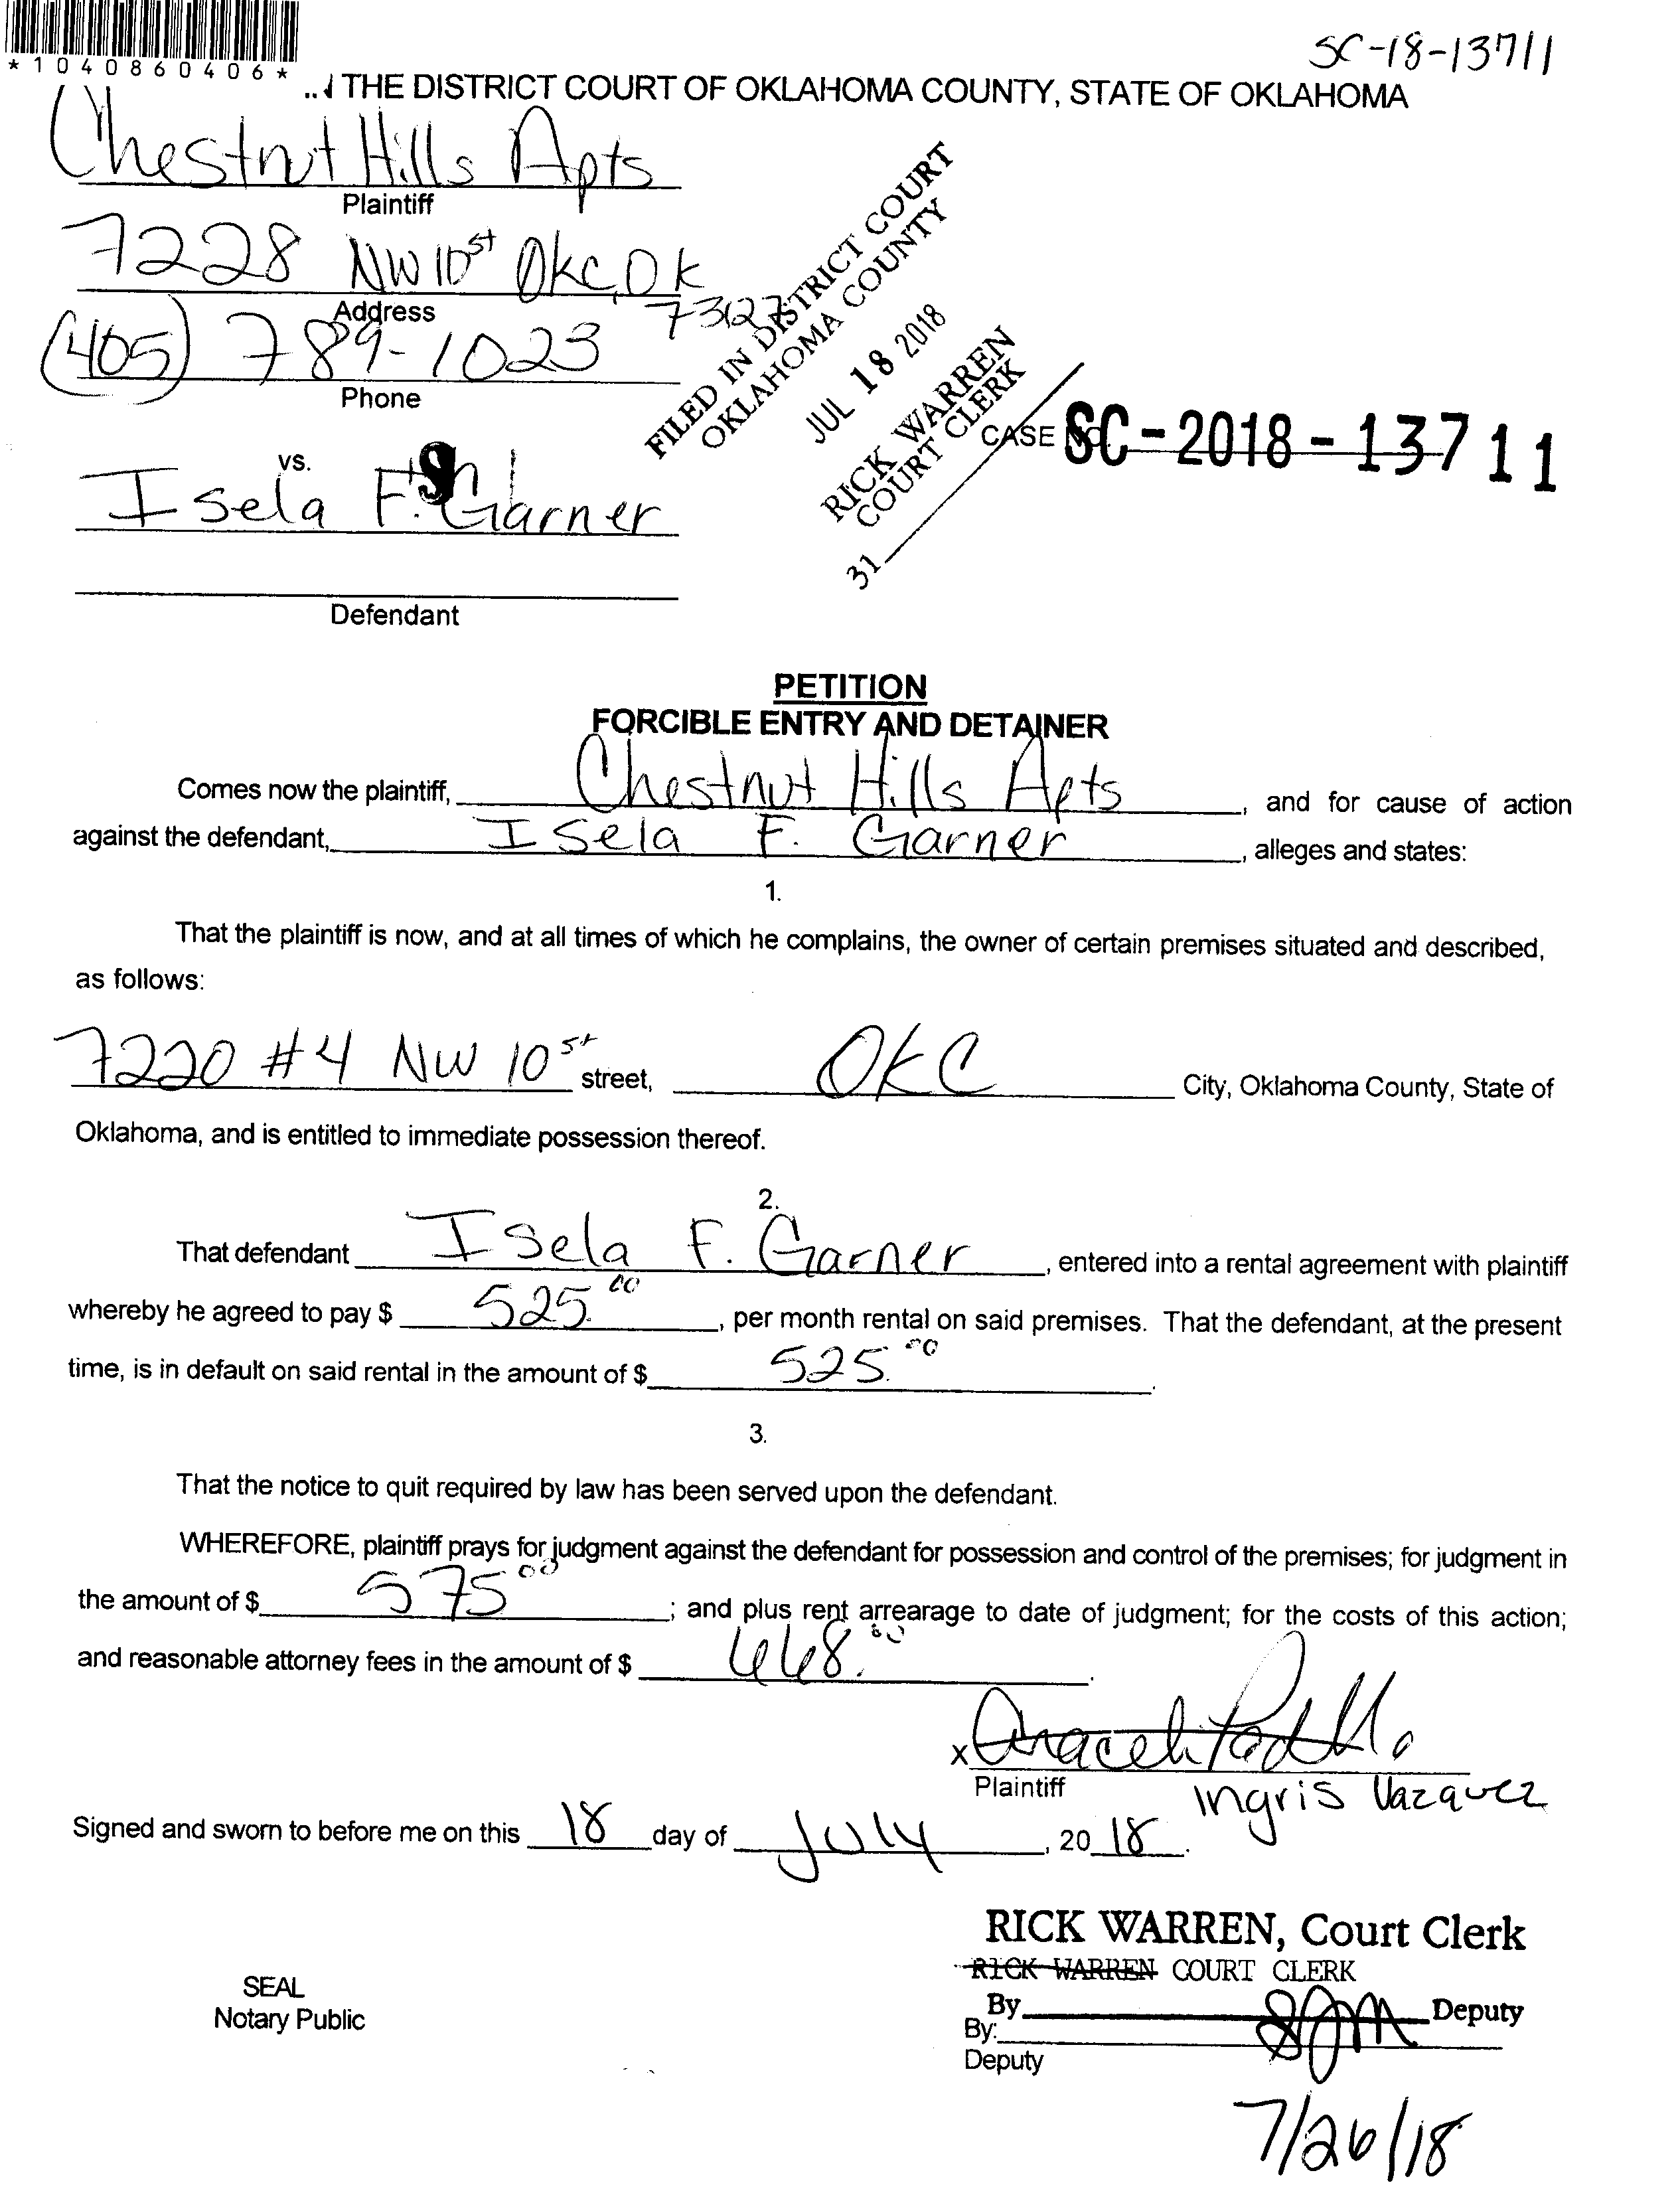 *1040860406*
SC-18-13711
THE DISTRICT COURT OF OKLAHOMA COUNTY, STATE OF OKLAHOMA
Chestnut Hills Apts
Plaintiff
7228 NW 10st OKC, OK
73127
Address
(405) 789-1023
Phone
FILED IN DISTRICT COURT
OKLAHOMA COUNTY
JUL 18 2018
RICK WARREN
COURT CLERK
31
CASE NO. SC-2018-13711
vs.
Isela F. Garner
Defendant
PETITION
FORCIBLE ENTRY AND DETAINER
Comes now the plaintiff, Chestnut Hills Apts, and for cause of action
against the defendant, Isela F. Garner, alleges and states:
1.
That the plaintiff is now, and at all times of which he complains, the owner of certain premises situated and described,
as follows:
7220 #4 NW 10st street, OKC City, Oklahoma County, State of
Oklahoma, and is entitled to immediate possession thereof.
2.
That defendant Isela F. Garner, entered into a rental agreement with plaintiff
whereby he agreed to pay $ 525.00, per month rental on said premises. That the defendant, at the present
time, is in default on said rental in the amount of $ 525.00.
3.
That the notice to quit required by law has been served upon the defendant.
WHEREFORE, plaintiff prays for judgment against the defendant for possession and control of the premises; for judgment in
the amount of $ 575 00; and plus rent arrearage to date of judgment; for the costs of this action;
and reasonable attorney fees in the amount of $ .
x Araceli Padilla
Plaintiff
Ingris Vazquez
Signed and sworn to before me on this 18 day of July, 20 18.
RICK WARREN, Court Clerk
RICK WARREN COURT CLERK
SEAL
Notary Public
By Deputy
By:
Deputy
7/26/18